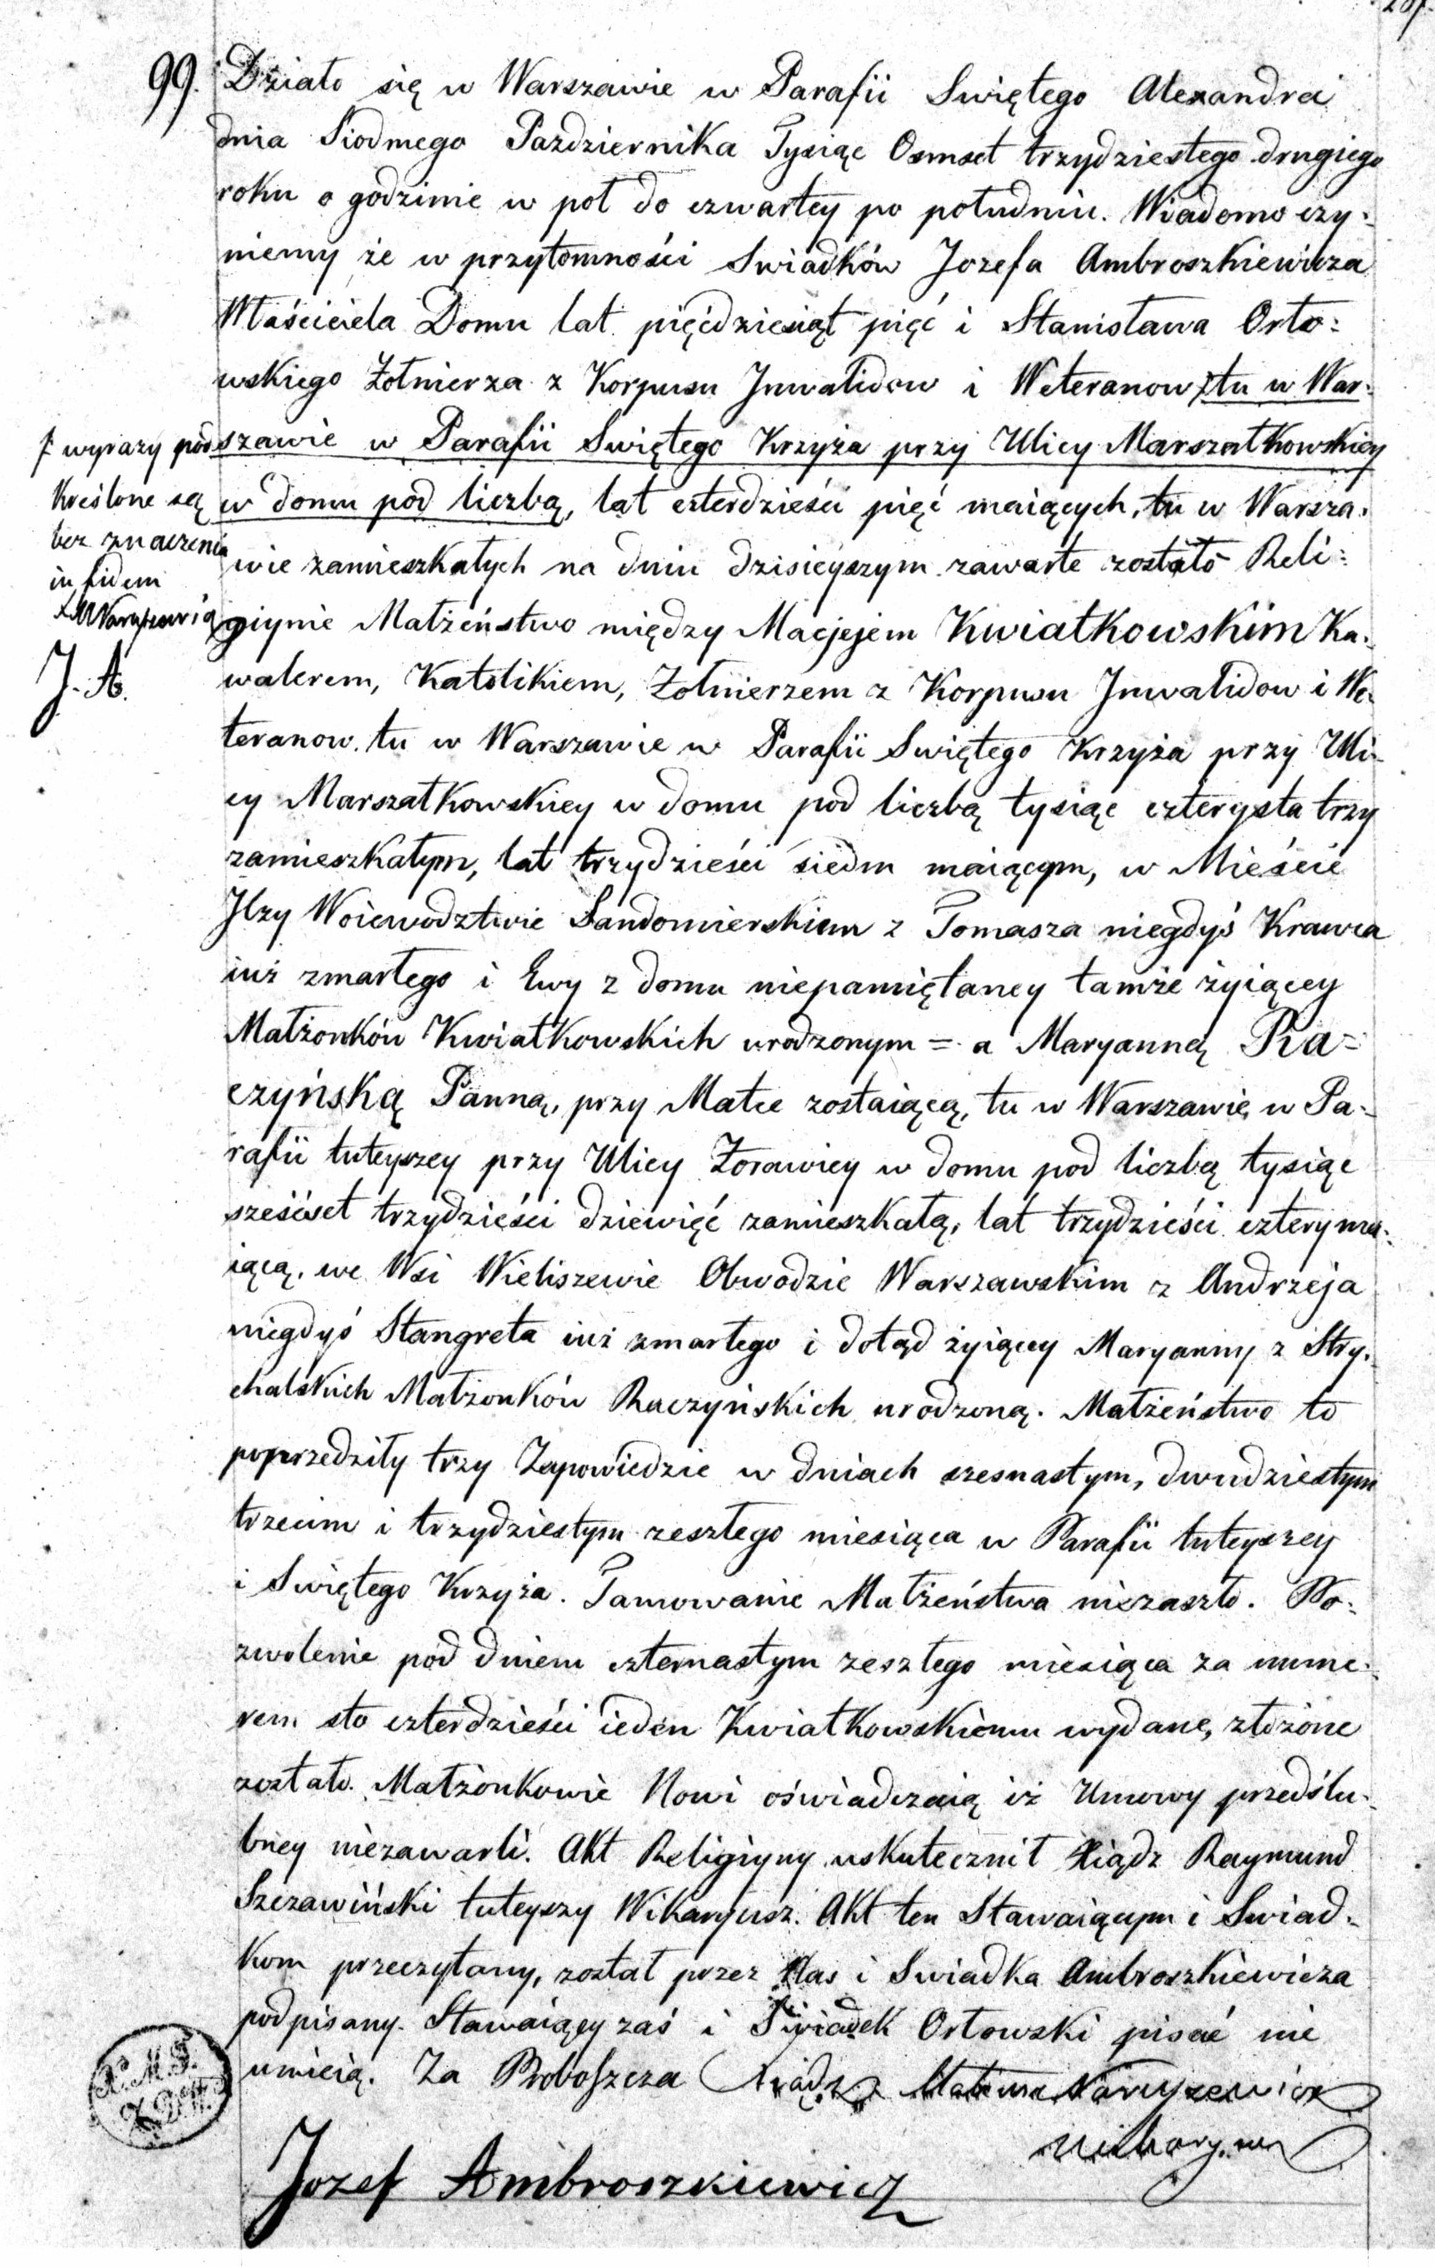 99. Działo się w Warszawie w Parafii Swiętego Alexandra
dnia Siodmego Pazdziernika Tysiąc Osmset trzydziestego drugiego
roku o godzinie w poł do czwartey po południu. Wiadomo czy-
niemy że w przytomności Swiadków Jozefa Ambroszkiewicza
Właściciela Domu lat pięćdziesiąt pięć i Stanisława Orło-
wskiego Żołnierza z Korpusu Inwalidow i Weteranow tu w War-
szawie w Parafii Swiętego Krzyża przy Ulicy Marszałkowskiey
w domu pod liczbą, lat czterdzieści pięć maiących, tu w Warsza-
wie zamieszkałych na dniu dzisieyszym zawarte zostało Reli-
giynie Małżeństwo między Macjejem Kwiatkowskim Ka-
walerem, Katolikiem, Żołnierzem z Korpusu Inwalidow i We-
teranow tu w Warszawie w Parafii Swiętego Krzyża przy Uli-
cy Marszałkowskiey w domu pod liczbą tysiąc czterysta trzy
zamieszkałym, lat trzydzieści siedm maiącym, w Mieście
Ilzy Woiewodztwie Sandomierskiem z Tomasza niegdyś Krawca
iuż zmarłego i Ewy z domu niepamiętaney tamże żyiącey
Małżonków Kwiatkowskich urodzonym = a Maryanną Ra=
czyńską Panną, przy Matce zostaiącą, tu w Warszawie w Pa-
rafii tuteyszey przy Ulicy Żorawiey w domu pod liczbą tysiąc
sześćset trzydzieści dziewięć zamieszkałą, lat trzydzieści cztery ma-
iącą, we Wsi Wieliszewie Obwodzie Warszawskim z Andrzeja
niegdyś Stangreta iuż zmarłego i dotąd żyiącey Maryanny z Stry-
chalskich Małżonków Raczyńskich urodzoną. Małżeństwo to
poprzedziły trzy Zapowiedzie w dniach szesnastym, dwudziestym
trzecim i trzydziestym zeszłego miesiąca w Parafii tuteyszey
i Swiętego Krzyża. Tamowanie Małżeństwa niezaszło. Po-
zwolenie pod dniem czternastym zeszłego miesiąca za nume-
rem sto czterdzieści ieden Kwiatkowskiemu wydane, złożone
zostało. Małżonkowie Nowi oświadczaią iż Umowy przedślu-
bney niezawarli. Akt Religiyny uskutecznił Xiądz Raymund
Szczawiński tuteyszy Wikaryusz. Akt ten Stawaiącym i Swiad-
kom przeczytany, został przez Nas i Swiadka Ambroszkiewicza
podpisany. Stawaiący zaś i Swiadek Orłowski pisać nie
umieią. Za Proboszcza Xiądz Naruszewicz
Wikaryusz
Jozef Ambroszkiewicz
wyrazy pod
kreślone są
bez znaczenia
in fidem
X M Naruszewicz
J. A.